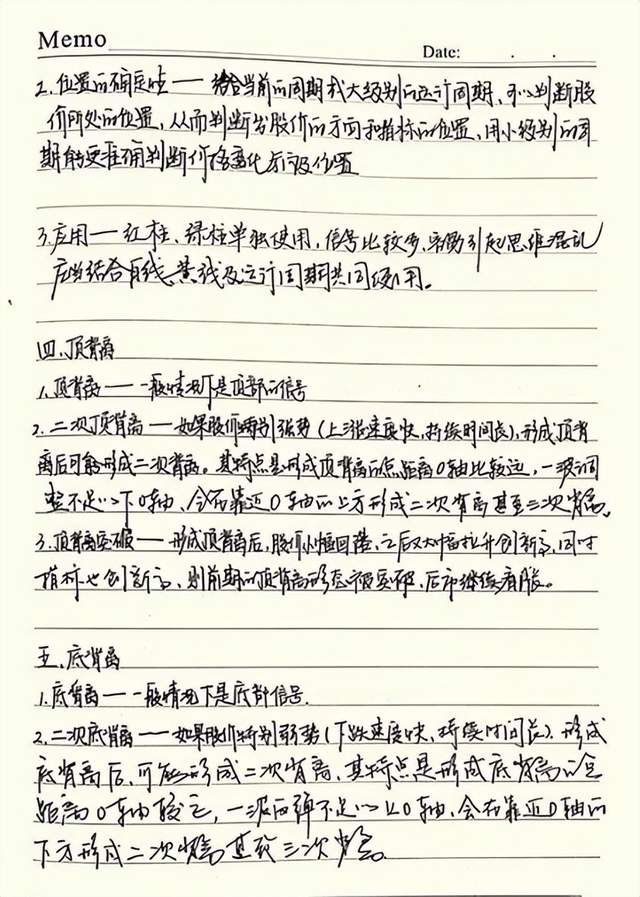 Memo
Date: . .
2.位置的确定性——结合当前的周期或大级别的运行周期、可以判断股
价所处的位置,从而判断出股价的方向和指标的位置,用小级别的周
期能更准确判断价格变化后的位置
3.应用——红柱、绿柱单独使用,信号比较多,容易引起思维混乱
应当结合白线、黄线及运行周期共同使用。
四、顶背离
1.顶背离——一般情况下是顶部的信号
2.二次顶背离——如果股价特别强势(上涨速度快,持续时间长),形成顶背
离后可能形成二次背离。其特点是形成顶背离的点距离0轴比较远,一波回
整不足以下0轴、会在靠近0轴的上方形成二次背离甚至三次背离。
3.顶背离突破——形成顶背离后,股价小幅回落,之后又大幅拉升创新高,同时
指标也创新高、则前期的顶背离形态被突破、后市继续看涨。
五、底背离
1.底背离——一般情况下是底部信号.
2.二次底背离——如果股价特别弱势(下跌速度快、持续时间长).形成
底背离后,可能形成二次背离,其特点是形成底背离的点
距离0轴较远,一波反弹不足以上0轴、会在靠近0轴的
下方形成二次背离甚至三次背离.